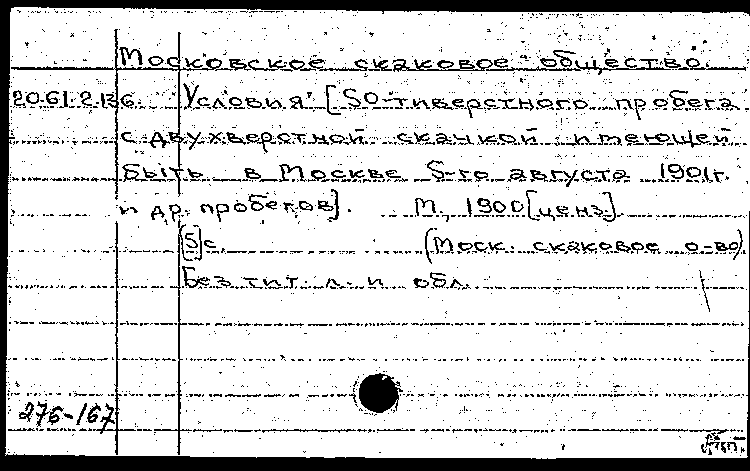 Московское скаковое общество.
20.61.2.136. Условия [50-тиверстного пробега
с двухверстной скачкой имеющей
быть в Москве 5-го августа 1901г.
и др. пробегов]. М., 1900[ценз].
[5]с. (Моск. скаковое о-во)
Без тит. л. и обл.
276-167